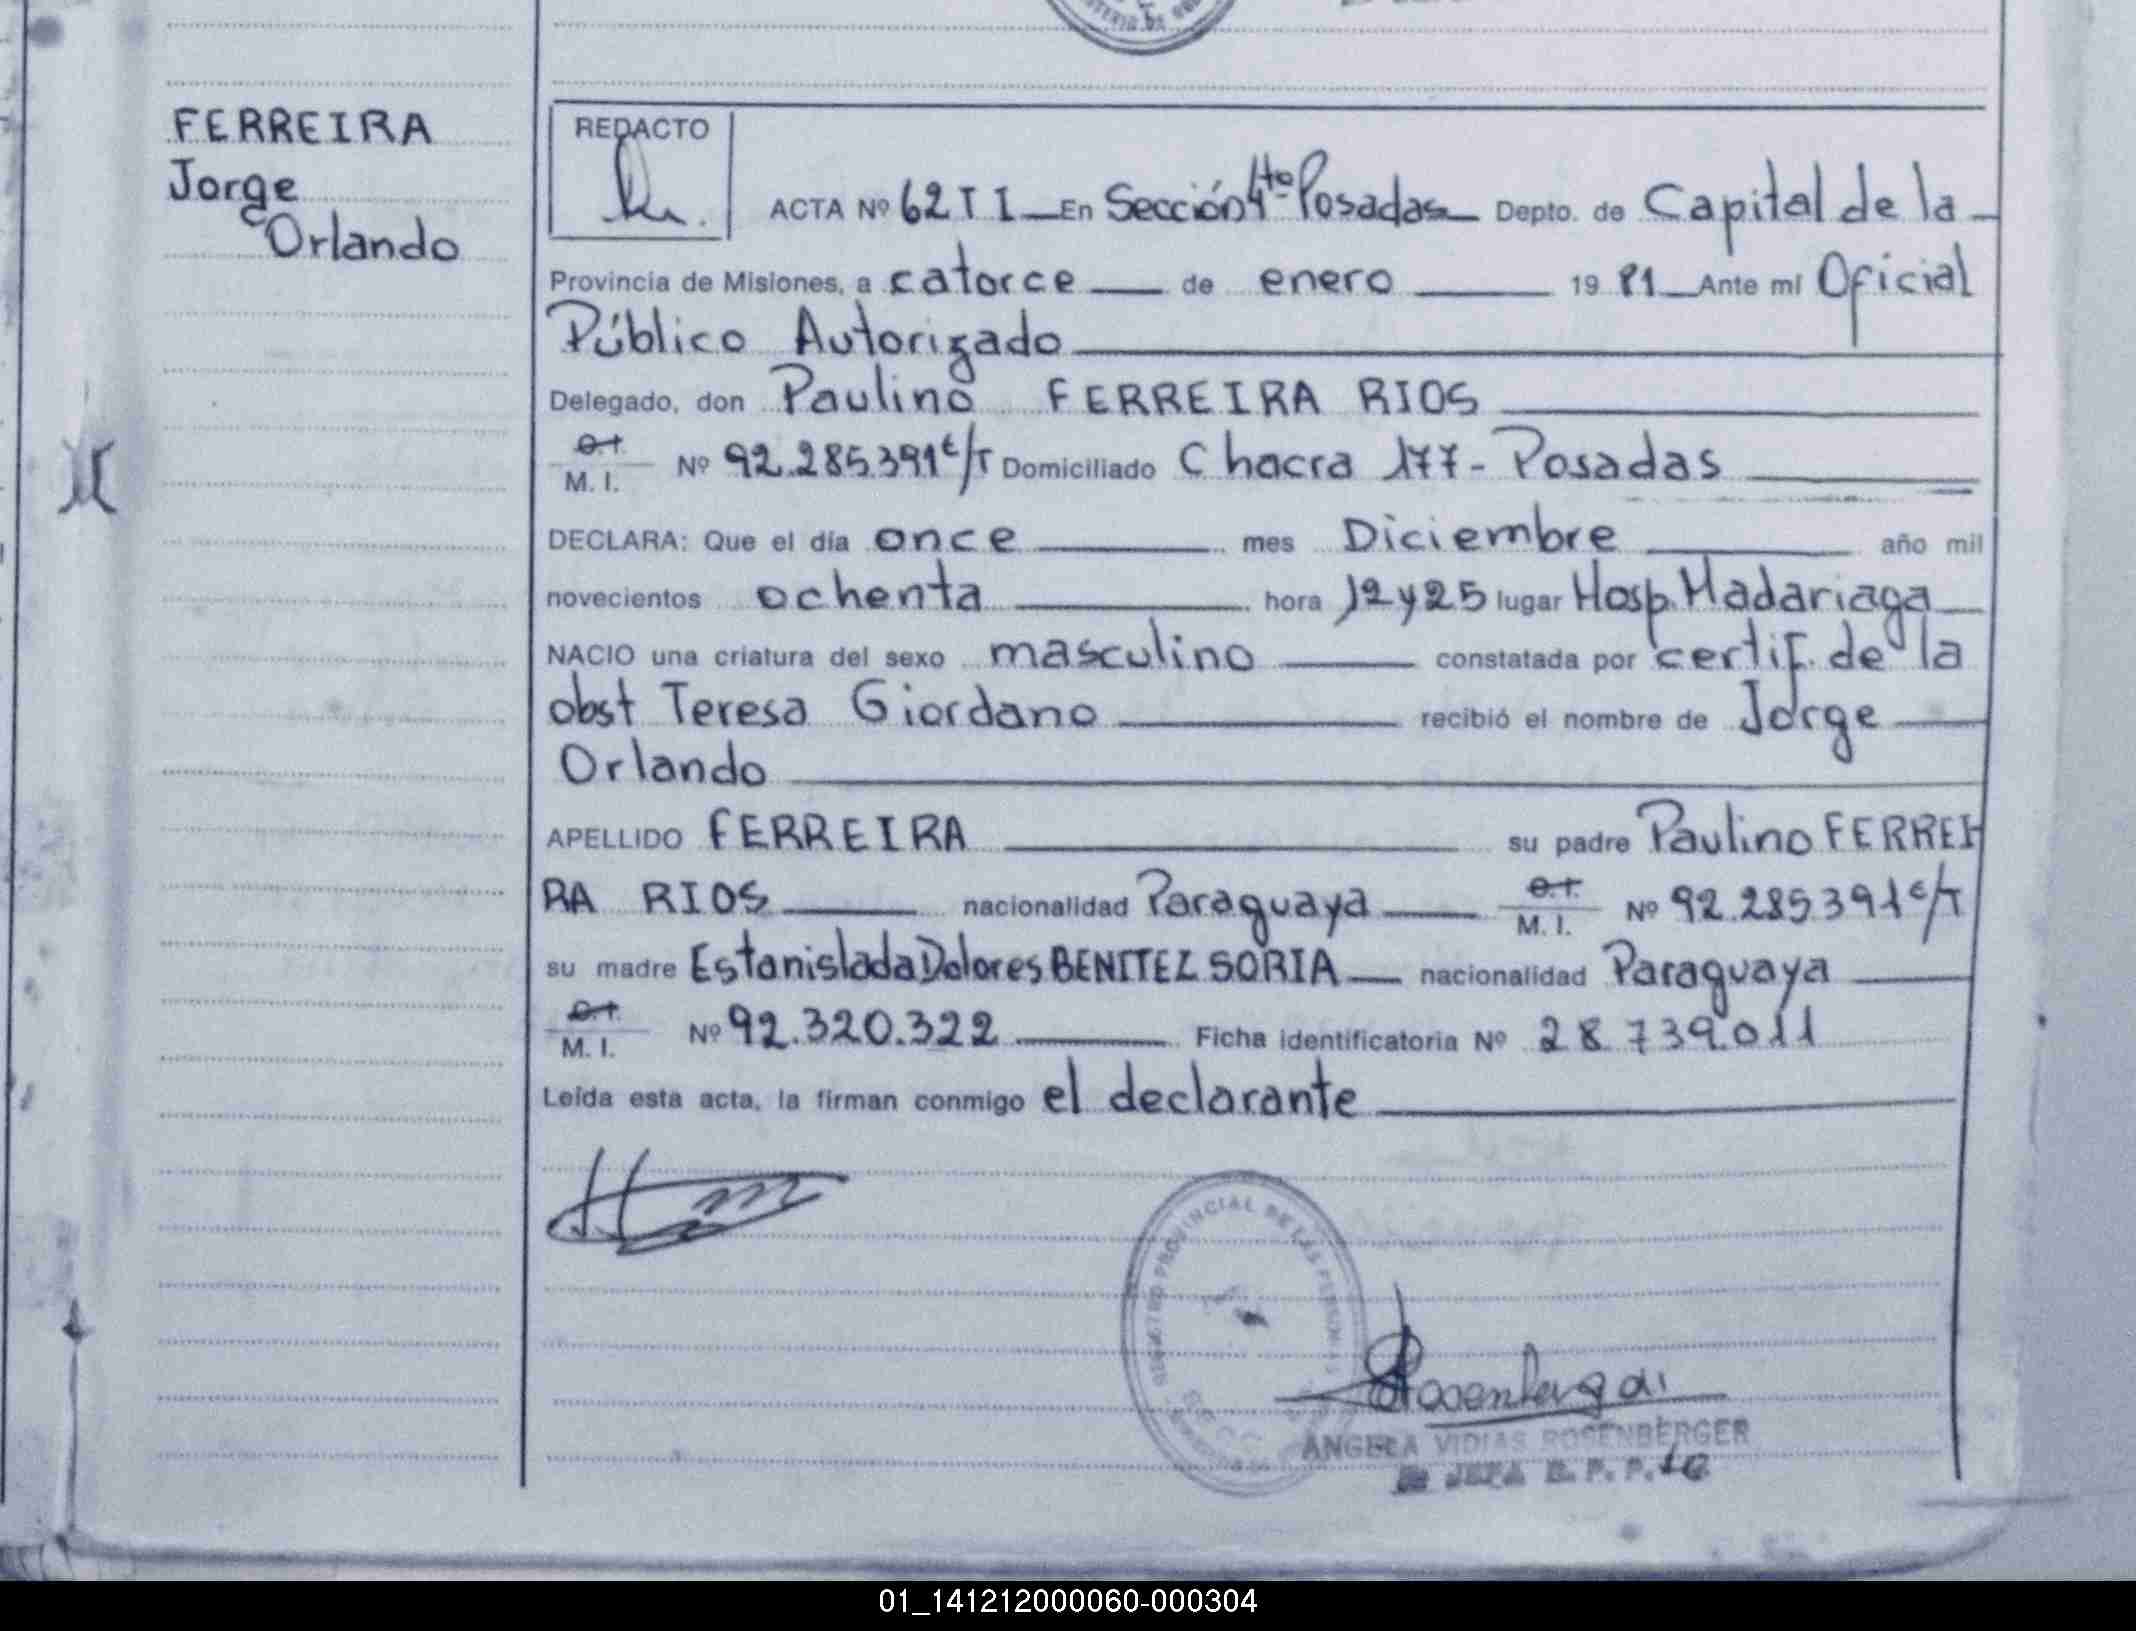 FERREIRA
Jorge
Orlando
REDACTO
ACTA Nº 62 T I En Sección 4ta Posadas Depto. de Capital de la
Provincia de Misiones, a catorce de enero 19 81 Ante mí Oficial
Público Autorizado
Delegado, don Paulino FERREIRA RIOS
M. I. Nº 92.285.391 c/T Domiciliado Chacra 177 - Posadas
DECLARA: Que el día once mes Diciembre año mil
novecientos ochenta hora 12 y 25 lugar Hosp. Madariaga
NACIO una criatura del sexo masculino constatada por certif. de la
obst Teresa Giordano recibió el nombre de Jorge
Orlando
APELLIDO FERREIRA su padre Paulino FERREI
RA RIOS nacionalidad Paraguaya M. I. Nº 92.285.391 c/T
su madre Estanislada Dolores BENITEZ SORIA nacionalidad Paraguaya
M. I. Nº 92.320.322 Ficha identificatoria Nº 28.739.011
Leída esta acta, la firman conmigo el declarante
REGISTRO PROVINCIAL DE LAS PERSONAS
ANGELA VIDIAS ROSENBERGER
JEFA
01_141212000060-000304